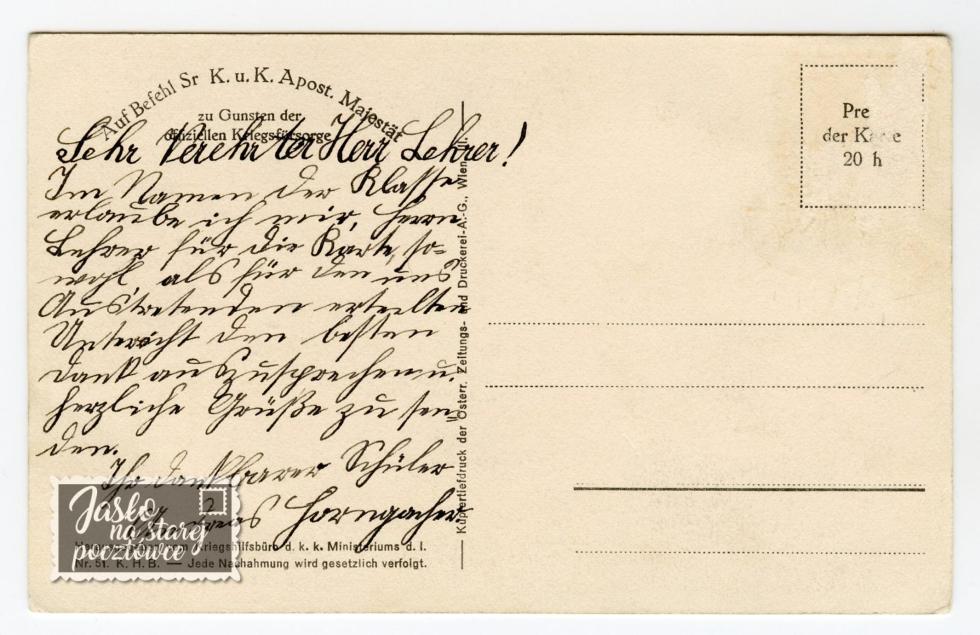 Auf Befehl Sr K. u. K. Apost. Majestät
zu Gunsten der
offiziellen Kriegsfürsorge
Sehr Verehrter Herr Lehrer!
Im Namen der Klasse
erlaube ich mir, Herrn
Lehrer für die Karte, so=
wohl als für den uns
Austretenden erteilten
Unterricht den besten
Dank auszusprechen u.
herzliche Grüße zu sen=
den.
Ihr dankbarer Schüler
Horngacher
Kriegshilfsbüro d. k. k. Ministeriums d. I.
Nr. 51. K. H. B. — Jede Nachahmung wird gesetzlich verfolgt.
Jasło
na starej
pocztówce
Kupfertiefdruck der Österr. Zeitungs- und Druckerei-A.-G., Wien
Pre
der Karte
20 h